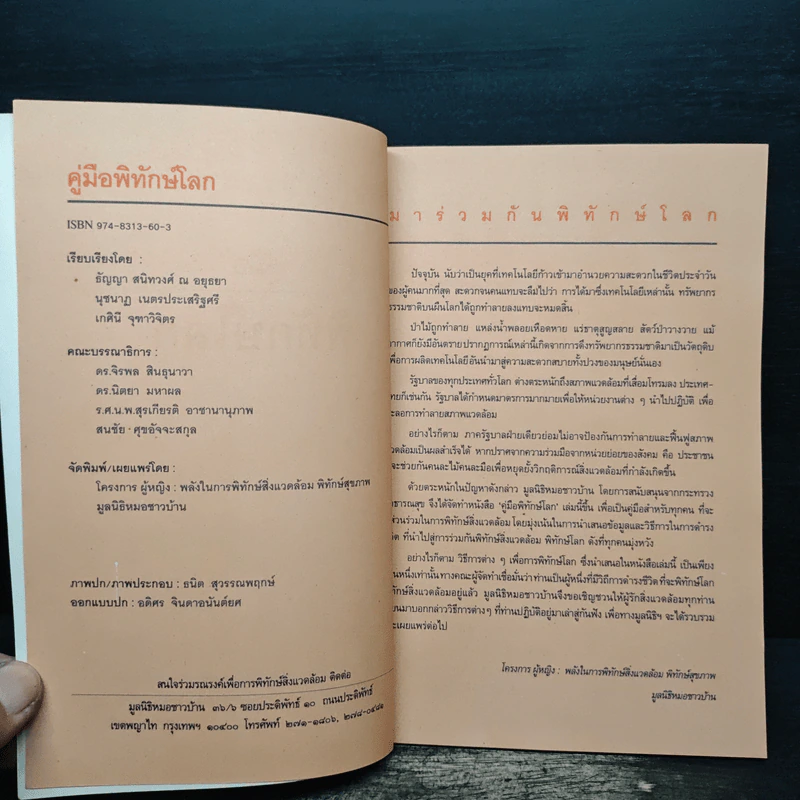 คู่มือพิทักษ์โลก
ISBN 974-8313-60-3
เรียบเรียงโดย :
ธัญญา สนิทวงศ์ ณ อยุธยา
นุชนาฏ เนตรประเสริฐศรี
เกศินี จุฑาวิจิตร
คณะบรรณาธิการ :
ดร.จิรพล สินธุนาวา
ดร.นิตยา มหาผล
ร.ศ.น.พ.สุรเกียรติ อาชานานุภาพ
สนชัย ศุขอัจจะสกุล
จัดพิมพ์/เผยแพร่โดย :
โครงการ ผู้หญิง : พลังในการพิทักษ์สิ่งแวดล้อม พิทักษ์สุขภาพ
มูลนิธิหมอชาวบ้าน
ภาพปก/ภาพประกอบ : ธนิต สุวรรณพฤกษ์
ออกแบบปก : อดิศร จินดาอนันต์ยศ
สนใจร่วมรณรงค์เพื่อการพิทักษ์สิ่งแวดล้อม ติดต่อ
มูลนิธิหมอชาวบ้าน ๓๖/๖ ซอยประดิพัทธ์ ๑๐ ถนนประดิพัทธ์
เขตพญาไท กรุงเทพฯ ๑๐๔๐๐ โทรศัพท์ ๒๗๑-๑๘๐๖,
มาร่วมกันพิทักษ์โลก
ปัจจุบัน นับว่าเป็นยุคที่เทคโนโลยีก้าวเข้ามาอำนวยความสะดวกในชีวิตประจำวัน
ของผู้คนมากที่สุด สะดวกจนคนแทบจะลืมไปว่า การได้มาซึ่งเทคโนโลยีเหล่านั้น ทรัพยากร
ธรรมชาติบนผืนโลกได้ถูกทำลายลงแทบจะหมดสิ้น
ป่าไม้ถูกทำลาย แหล่งน้ำพลอยเหือดหาย แร่ธาตุสูญสลาย สัตว์ป่าวางวาย แม้
อากาศก็ยังมีอันตรายปรากฏการณ์เหล่านี้เกิดจากการดึงทรัพยากรธรรมชาติมาเป็นวัตถุดิบ
เพื่อการผลิตเทคโนโลยีอันนำมาสู่ความสะดวกสบายทั้งปวงของมนุษย์นั่นเอง
รัฐบาลของทุกประเทศทั่วโลก ต่างตระหนักถึงสภาพแวดล้อมที่เสื่อมโทรมลง ประเทศ-
ไทยก็เช่นกัน รัฐบาลได้กำหนดมาตรการมากมายเพื่อให้หน่วยงานต่าง ๆ นำไปปฏิบัติ เพื่อ
ชะลอการทำลายสภาพแวดล้อม
อย่างไรก็ตาม ภาครัฐบาลฝ่ายเดียวย่อมไม่อาจป้องกันการทำลายและฟื้นฟูสภาพ
แวดล้อมเป็นผลสำเร็จได้ หากปราศจากความร่วมมือจากหน่วยย่อยของสังคม คือ ประชาชน
จะช่วยกันคนละไม้คนละมือเพื่อหยุดยั้งวิกฤติการณ์สิ่งแวดล้อมที่กำลังเกิดขึ้น
ด้วยตระหนักในปัญหาดังกล่าว มูลนิธิหมอชาวบ้าน โดยการสนับสนุนจากกระทรวง
สาธารณสุข จึงได้จัดทำหนังสือ ‘คู่มือพิทักษ์โลก’ เล่มนี้ขึ้น เพื่อเป็นคู่มือสำหรับทุกคน ที่จะ
มีส่วนร่วมในการพิทักษ์สิ่งแวดล้อม โดยมุ่งเน้นในการนำเสนอข้อมูลและวิธีการในการดำรง
ชีวิต ที่นำไปสู่การร่วมกันพิทักษ์สิ่งแวดล้อม พิทักษ์โลก ดังที่ทุกคนมุ่งหวัง
อย่างไรก็ตาม วิธีการต่าง ๆ เพื่อการพิทักษ์โลก ซึ่งนำเสนอในหนังสือเล่มนี้ เป็นเพียง
ส่วนหนึ่งเท่านั้นทางคณะผู้จัดทำเชื่อมั่นว่าท่านเป็นผู้หนึ่งที่มีวิถีการดำรงชีวิตที่จะพิทักษ์โลก
พิทักษ์สิ่งแวดล้อมอยู่แล้ว มูลนิธิหมอชาวบ้านจึงขอเชิญชวนให้ผู้รักสิ่งแวดล้อมทุกท่าน
เขียนมาบอกกล่าววิธีการต่างๆ ที่ท่านปฏิบัติอยู่มาเล่าสู่กันฟัง เพื่อทางมูลนิธิฯ จะได้รวบรวม
และเผยแพร่ต่อไป
โครงการ ผู้หญิง : พลังในการพิทักษ์สิ่งแวดล้อม พิทักษ์สุขภาพ
มูลนิธิหมอชาวบ้าน